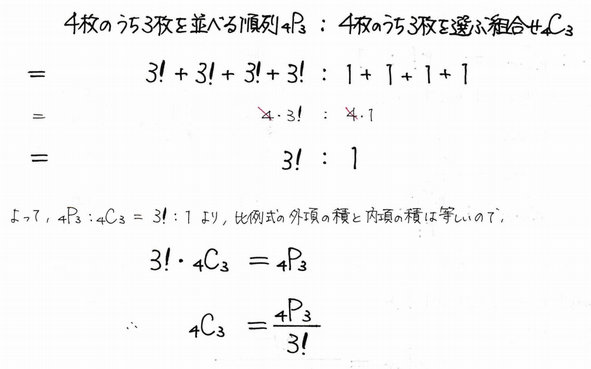 4枚のうち3枚を並べる順列₄P₃ : 4枚のうち3枚を選ぶ組合せ₄C₃
= 3! + 3! + 3! + 3! : 1 + 1 + 1 + 1
= 4・3! : 4・1
= 3! : 1
よって, ₄P₃ : ₄C₃ = 3! : 1 より, 比例式の外項の積と内項の積は等しいので,
3!・₄C₃ = ₄P₃
∴ ₄C₃ = ₄P₃/3!